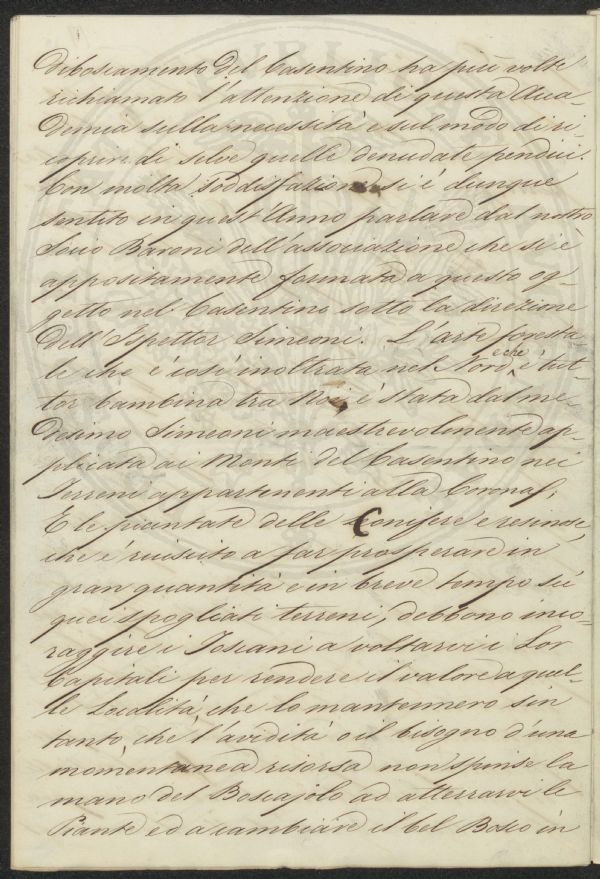 diboscamento del Casentino ha più volte
richiamato l'attenzione di questa Acca-
demia sulla necessità e sul modo di ri-
coprir di selve quelle denudate pendici.
Con molta soddisfazione si è dunque
sentito in quest'Anno parlare dal nostro
Socio Baroni dell'associazione che si è
appositamente formata a questo og-
getto nel Casentino sotto la direzione
dell'Ispettor Simeoni. L'arte foresta
le che è così inoltrata nel Nord, e che è tut-
tor bambina tra Noi, è stata dal me
desimo Simeoni maestrevolmente ap-
plicata ai Monti del Casentino nei
Terreni appartenenti alla Corona;
E le piantate delle Conifere e resinose,
che è riuscito a far prosperare in
gran quantità e in breve tempo su
quei spogliati terreni, debbono inco-
raggire i Toscani a voltarvi i Lor
Capitali per rendere il valore a quel-
le Località, che lo mantennero sin
tanto, che l'avidità o il bisogno d'una
momentanea risorsa non spinse la
mano del Boscajolo ad atterrarvi le
Piante ed a cambiare il bel Bosco in